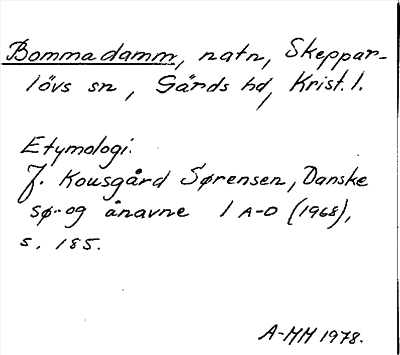 Bommadamm, natn, Skeppar-
lövs sn, Gärds hd, Krist. l.
Etymologi:
J. Kousgård Sørensen, Danske
sø- og ånavne 1 A-D (1968),
s. 185.
A-MM 1978.